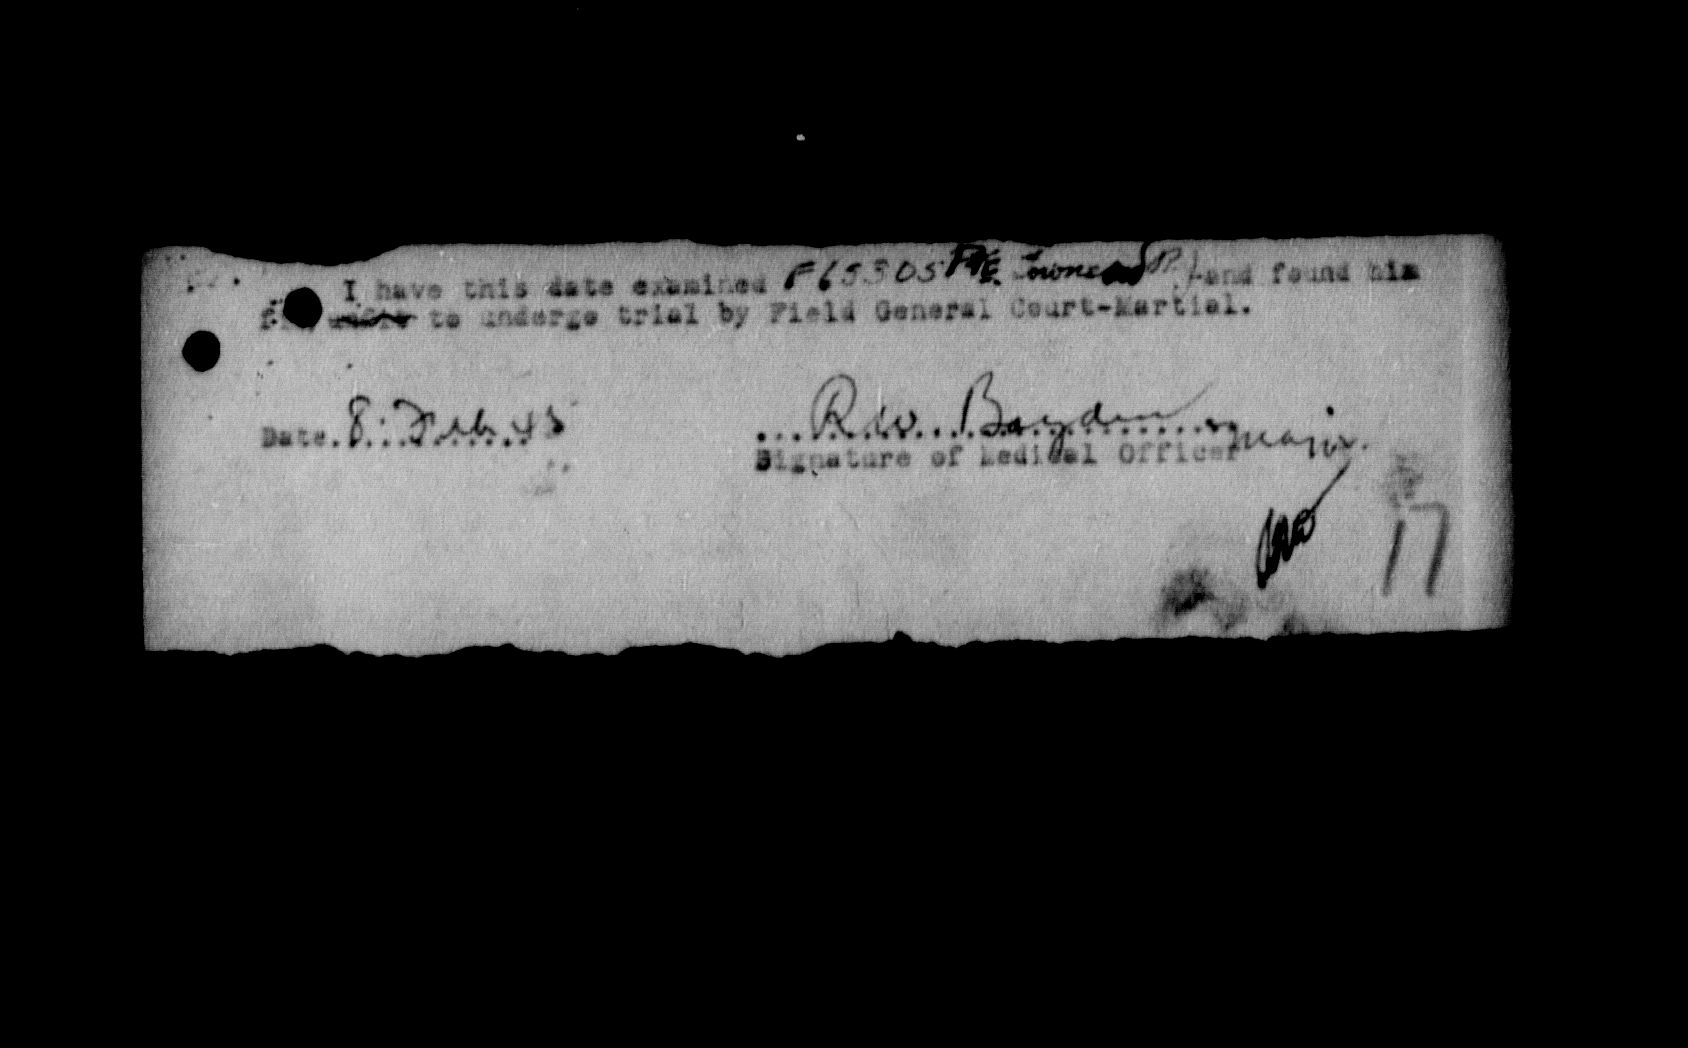 I have this date examined F65305 Pte. Townsend P.) and found him
fit unfit to undergo trial by Field General Court-Martial.
Date. 8 Feb 45
R W Boyden Major.
Signature of Medical Officer
17